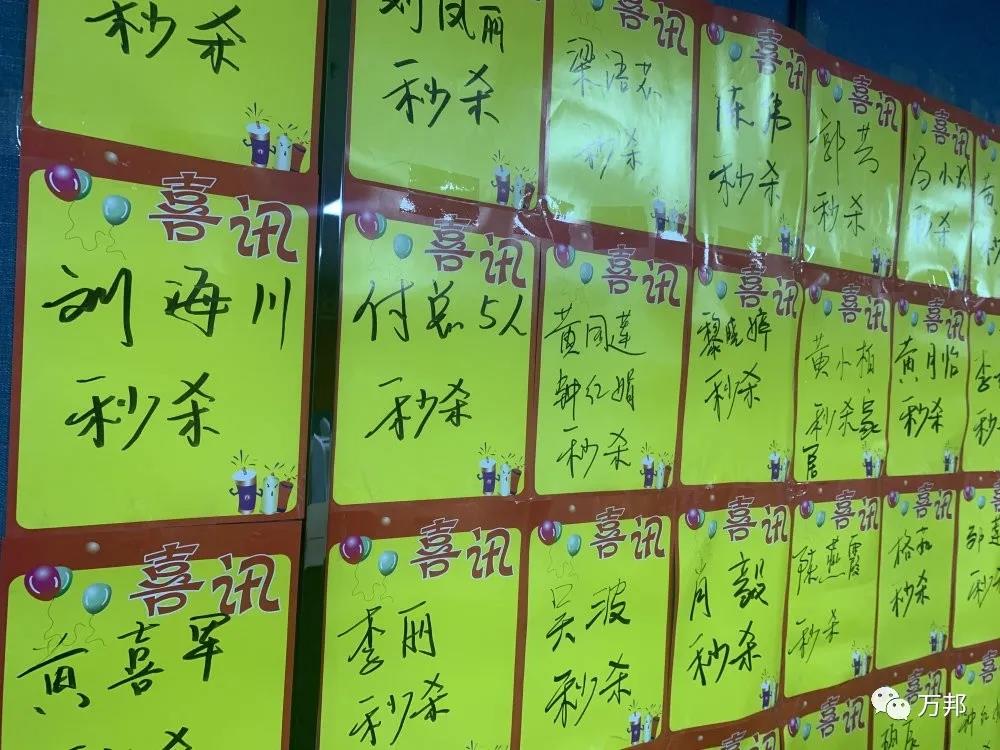 秒杀
刘凤丽
秒杀
喜讯
秒杀
喜讯
陈
秒杀
喜讯
郭
秒杀
喜讯
冯小
秒杀
喜讯
刘海川
秒杀
喜讯
付总5人
秒杀
喜讯
黄同莲
钟红娟
秒杀
喜讯
黎晓婷
秒杀
喜讯
黄小柏
秒杀家
居
喜讯
黄月怡
秒杀
李
秒
喜讯
黄喜军
秒杀
喜讯
李丽
秒杀
喜讯
吴波
秒杀
喜讯
肖毅
秒杀
喜讯
陈燕霞
秒杀
喜讯
秒杀
秒
喜讯
喜讯
喜讯
万邦